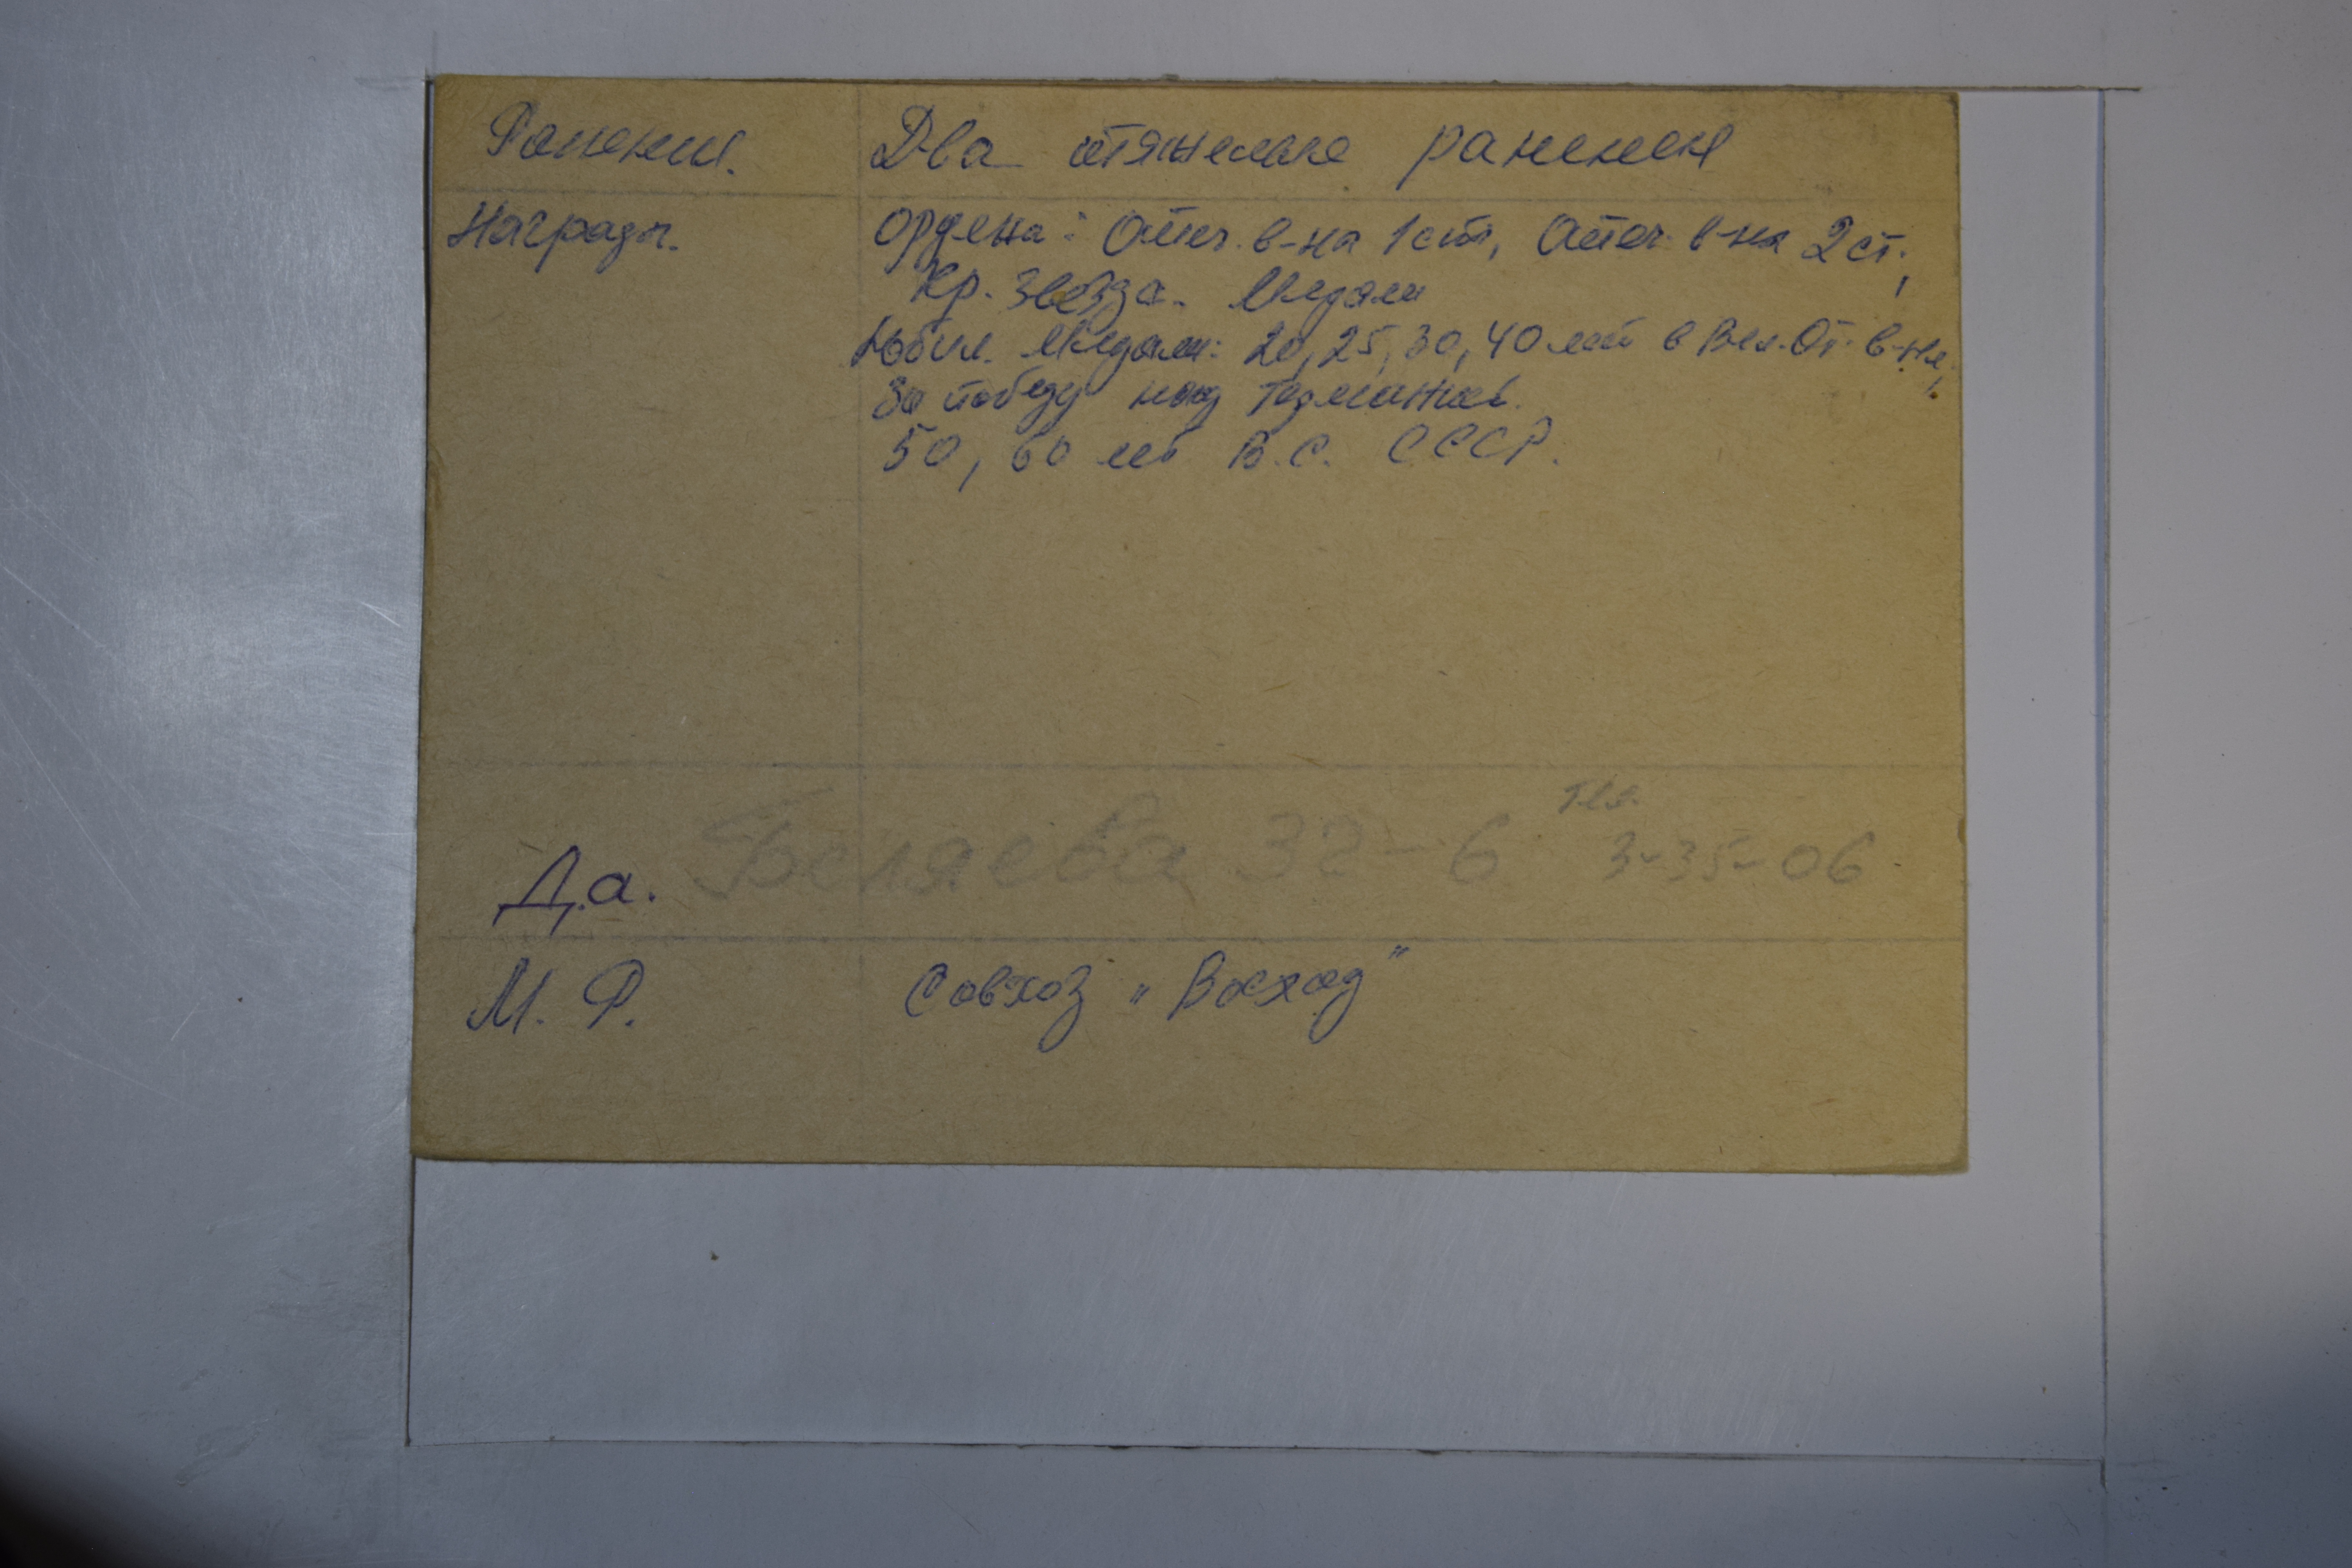 Ранения. Два тяжелые ранения
Награды. Ордена: Отеч. в-на 1 ст, Отеч. в-на 2 ст.,
Кр. Звезда. Медали
Юбил. Медали: 20, 25, 30, 40 лет в Вел. От. в-не,
За победу над Германией.
50, 60 лет В.С. СССР.
Д.а. Беляева 32-6 тел. 3-35-06
М. Р. Совхоз „Восход"